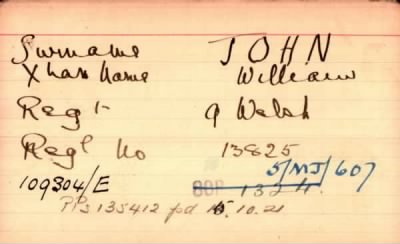 Surname JOHN
Xtian Name William
Regt 9 Welsh
Regtl No 13825
5/MJ/607
109304/E
PPs 135412 pd 15.10.21